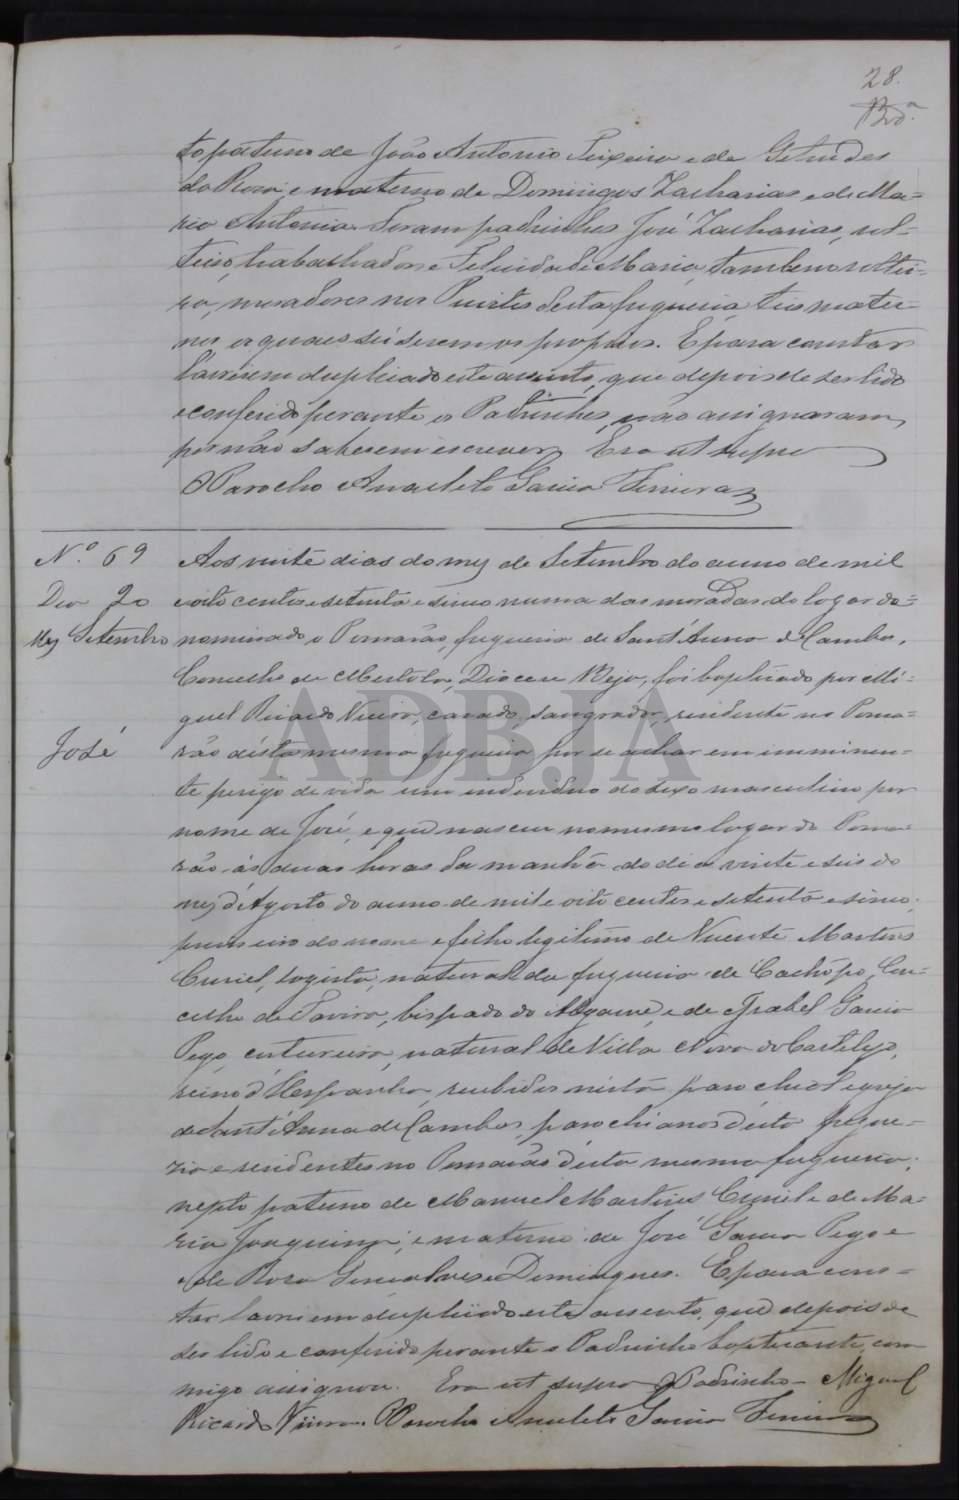 28.
to paterno de João Antonio Teixeira e de Getrudes
da Rosa e materno de Domingos Zacharias e de Ma=
ria Antonia. Foram padrinhos José Zacharias, sol-
teiro, trabalhador e Felicidade Maria, tambem soltei-
ra, moradores nos desta freguezia, tios mater-
nos os quaes sei serem os proprios. E para constar
lavrei em duplicado este assento, que depois de ser lido
e conferido perante os Padrinhos, não assignaram
por não saberem escrever. Era ut supra
O Parocho Anacleto Garcia
N.º 69
Dia 20
Mez Setembro
José
Aos vinte dias do mez de Setembro do anno de mil
e oito centos e setenta e sinco numa das moradas do logar de=
nominado o Pomarão, freguezia de Sant'Anna de Cambas,
Concelho de Mertola, Diocese Beja, foi baptizado por Mi-
guel Ricardo Vieira, casado, sangrador, residente no Poma-
rão désta mesma freguezia por se achar em imminen-
te perigo de vida um individuo do sexo masculino por
nome de José, e que nasceu no mesmo logar do Poma-
rão ás duas horas da manhã do dia vinte e seis do
mez d'Agosto do anno de mil e oito centos e setenta e sinco,
primeiro do nome e filho legitimo de Vicente Martins
Curiel, logista, natural da freguezia de Cachópo, Con-
celho de Tavira, bispado do Algarve, e de Izabel Garcia
Pego, custureira, natural de Villa Nova do Castelejo,
reino d'Hespanha, recebidos nésta parochial egreja
de Sant'Anna de Cambas, parochianos désta fregue-
zia e residentes no Pomarão désta mesma freguezia;
nepto paterno de Manuel Martins Curiel e de Ma=
ria Joaquina, e materno de José Garcia Pego e
de Rosa Gonsalves e Domingues. E para cons-
tar lavrei em duplicado este assento, que depois de
ser lido e conferido perante o Padrinho baptizante, com
migo assignou. Era ut supra O Padrinho - Miguel
Ricardo Vieira. O Parocho Anacleto Garcia
ADBJA